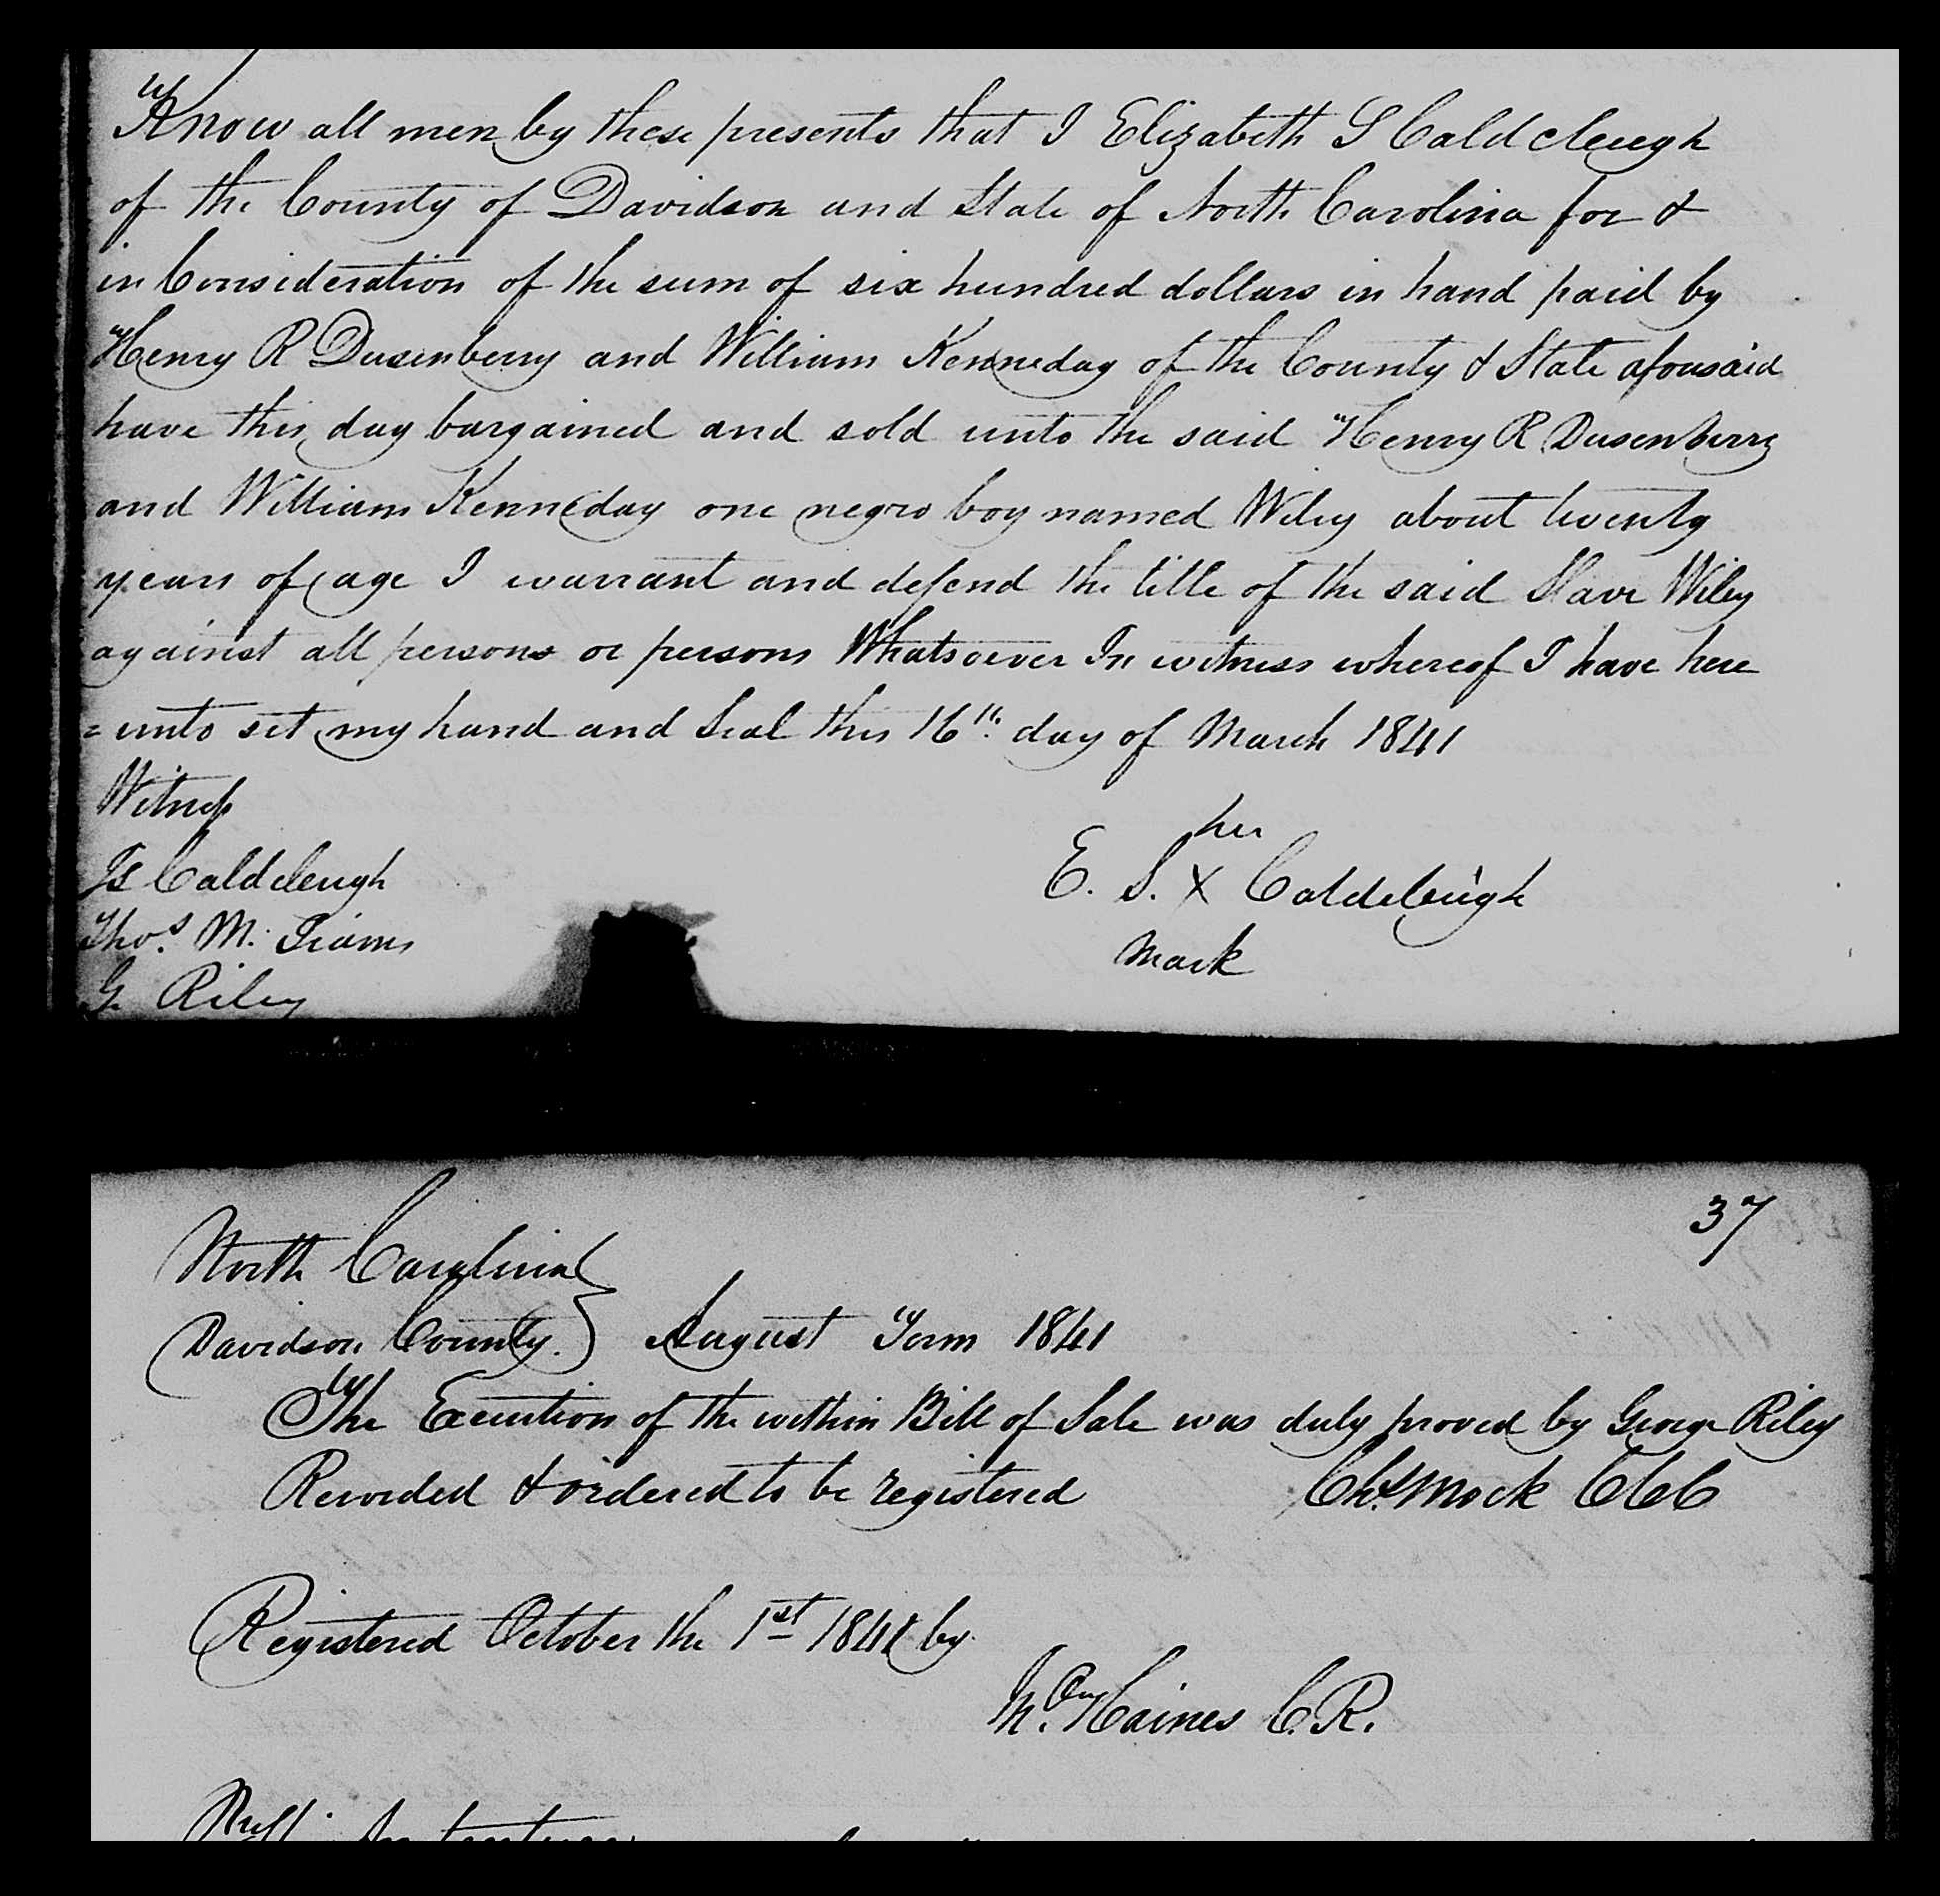 Know all men by these presents that I Elizabeth S Caldcleugh
of the County of Davidson and State of North Carolina for &
in Consideration of the sum of six hundred dollars in hand paid by
Henry R Dusenberry and William Kenneday of the County & State aforesaid
have this day bargained and sold unto the said Henry R Dusenberry
and William Kenneday one negro boy named Wiley about twenty
years of age I warrant and defend the title of the said Slave Wiley
against all persons or persons Whatsoever In witness whereof I have here
=unto set my hand and Seal this 16th day of March 1841
Witness
Js Caldcleugh
Thos M.
G. Riley
her
E. S. X Caldcleugh
mark
37
North Carolina
Davidson County. } August Term 1841
The Execution of the within Bill of Sale was duly proved by George Riley
Recorded & ordered to be registered Chs Mock CCC
Registered October the 1st 1841 by
Haines C.R.